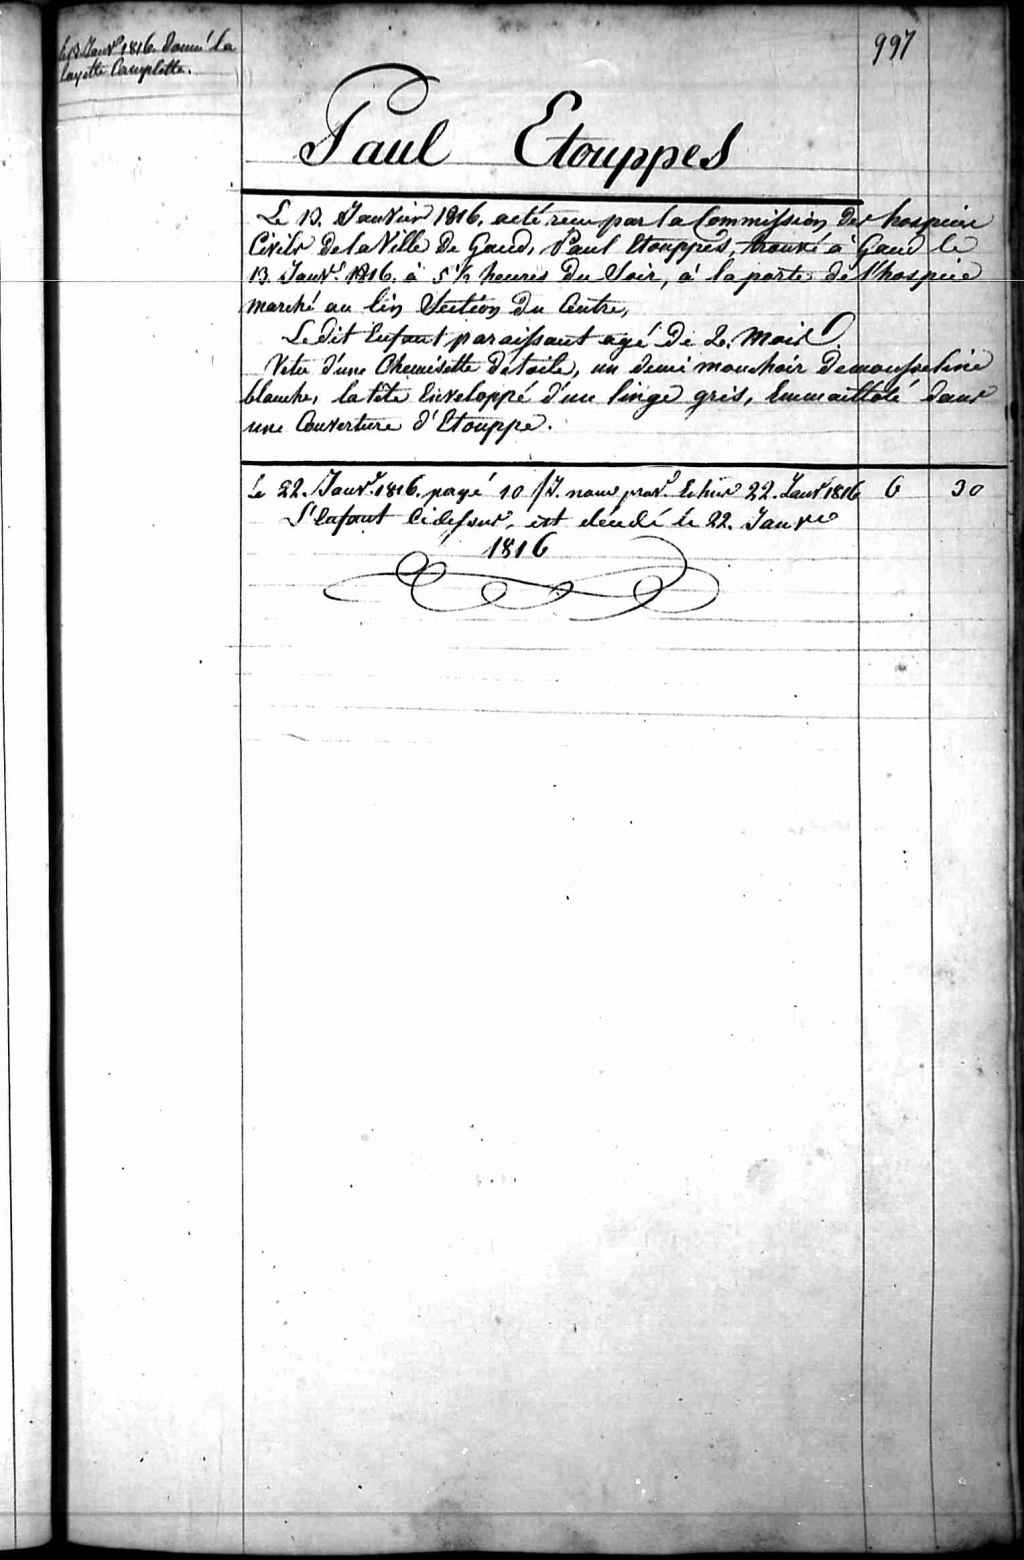 le 13 Janv.r 1816. donné la
layette Complette.
997
Paul Etouppes
Le 13. Janvier 1816. a été reçu par la Commission des hospices
Civils de la Ville de Gand, Paul Etouppes, trouvé à Gand le
13. Janv.r 1816. à 5 1/2 heures du Soir, à la porte de l'hospice
marché au lin Section du Centre,
Le dit Enfant paraissant agé de 2. mois.
Vetu d'une Chemisette de toile, un demi mouchoir de mousseline
blanche, la tête Enveloppé d'un linge gris, Emmailloté dans
une Couverture d'Etouppe.
Le 22. Janv.r 1816. payé 10 /J. nour. prov.e Echus 22. Janv.r 1816 6 30
L'Enfant Cidessus, est décédé le 22. Janv.re
1816